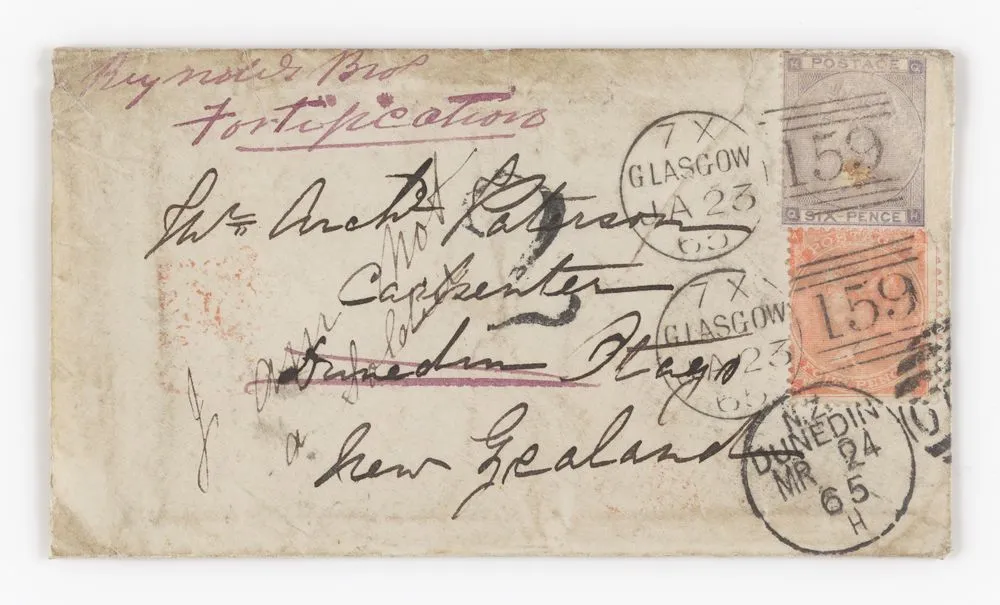 Reynolds Bros
Fortification
Archd Paterson
Carpenter
Dunedin Otago
New Zealand
I am not
a
2
7 X
GLASGOW
JA 23
65
7 X
GLASGOW
JA 23
65
POSTAGE
159
G
SIX PENCE
H
159
N.Z.
DUNEDIN
MR 24
65
H